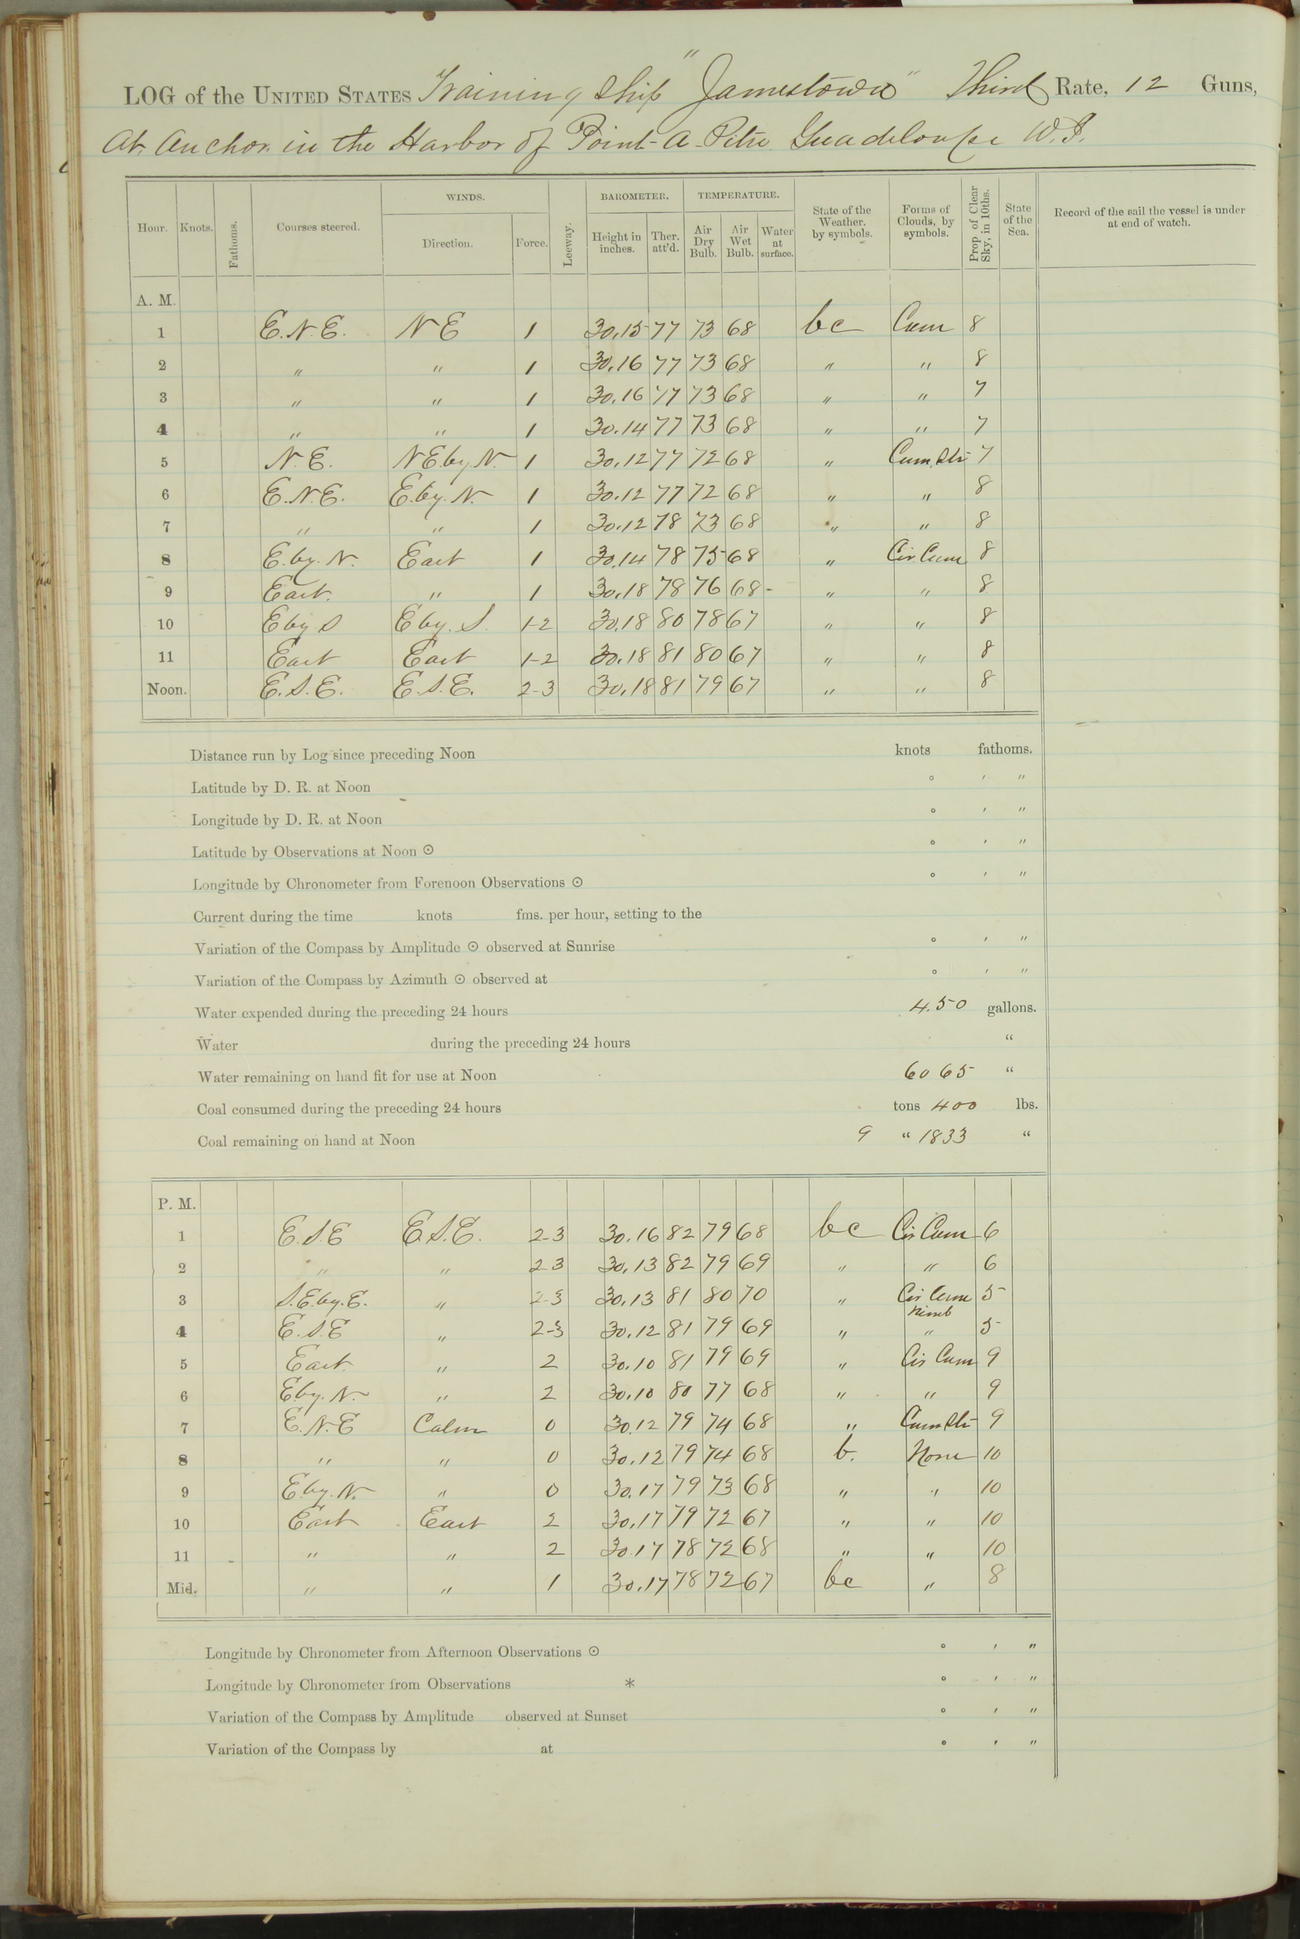 LOG of the UNITED STATES Training Ship "Jamestown" Third Rate, 12 Guns,
At Anchor in the Harbor of Point-a-Pitre Guadeloupe W.I.
Hour. Knots. Fathoms. Courses steered. WINDS. Direction. Force. Leeway. BAROMETER. Height in inches. Ther. att'd. TEMPERATURE. Air Dry Bulb. Air Wet Bulb. Water at surface. State of the Weather. by symbols. Forms of Clouds, by symbols. Prop of Clear Sky, in 10ths. State of the Sea. Record of the sail the vessel is under at end of watch.
A. M.
1 E.N.E. NE 1 30.15 77 73 68 bc Cum 8
2 " " 1 30.16 77 73 68 " " 8
3 " " 1 30.16 77 73 68 " " 7
4 " " 1 30.14 77 73 68 " " 7
5 N.E. NE by N. 1 30.12 77 72 68 " Cum Str 7
6 E.N.E. E. by. N. 1 30.12 77 72 68 " " 8
7 " " 1 30.12 78 73 68 " " 8
8 E. by. N. East 1 30.14 78 75 68 " Cir Cum 8
9 East. " 1 30.18 78 76 68 - " " 8
10 E by S E by. S. 1-2 30.18 80 78 67 " " 8
11 East East 1-2 30.18 81 80 67 " " 8
Noon. E.S.E. E.S.E. 2-3 30.18 81 79 67 " " 8
Distance run by Log since preceding Noon knots fathoms.
Latitude by D. R. at Noon ° ' "
Longitude by D. R. at Noon ° ' "
Latitude by Observations at Noon ☉ ° ' "
Longitude by Chronometer from Forenoon Observations ☉ ° ' "
Current during the time knots fms. per hour, setting to the
Variation of the Compass by Amplitude ☉ observed at Sunrise ° ' "
Variation of the Compass by Azimuth ☉ observed at ° ' "
Water expended during the preceding 24 hours 450 gallons.
Water during the preceding 24 hours "
Water remaining on hand fit for use at Noon 6065 "
Coal consumed during the preceding 24 hours tons 400 lbs.
Coal remaining on hand at Noon 9 " 1833 "
P. M.
1 E.S.E E.S.E. 2-3 30.16 82 79 68 bc Cir Cum 6
2 " " 2-3 30.13 82 79 69 " " 6
3 S.E. by. E. " 2-3 30.13 81 80 70 " Cir Cum Nimb 5
4 E.S.E " 2-3 30.12 81 79 69 " " 5
5 East. " 2 30.10 81 79 69 " Cir Cum 9
6 E by. N. " 2 30.10 80 77 68 " " 9
7 E.N.E Calm 0 30.12 79 74 68 " Cum Str 9
8 " " 0 30.12 79 74 68 b. None 10
9 E. by. N. " 0 30.17 79 73 68 " " 10
10 East East 2 30.17 79 72 67 " " 10
11 " " 2 30.17 78 72 68 " " 10
Mid. " " 1 30.17 78 72 67 bc " 8
Longitude by Chronometer from Afternoon Observations ☉ ° ' "
Longitude by Chronometer from Observations * ° ' "
Variation of the Compass by Amplitude observed at Sunset ° ' "
Variation of the Compass by at ° ' "